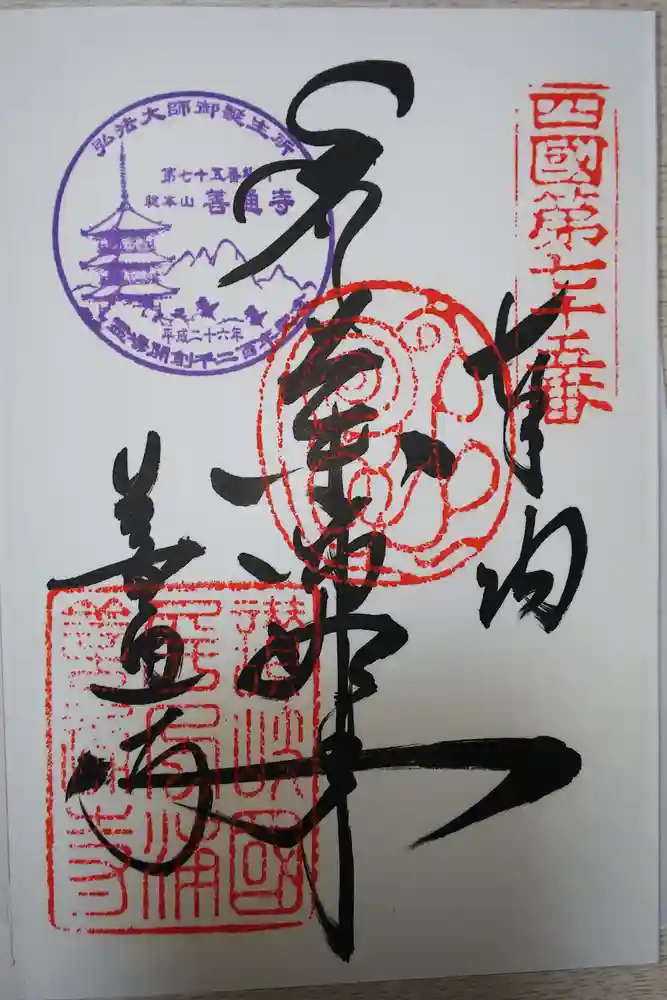 四國第七十五番
奉納
善通寺
弘法大師御誕生所
第七十五番
総本山 善通寺
平成二十六年
霊場開創千二百年
讃岐國
屏風浦
善通寺